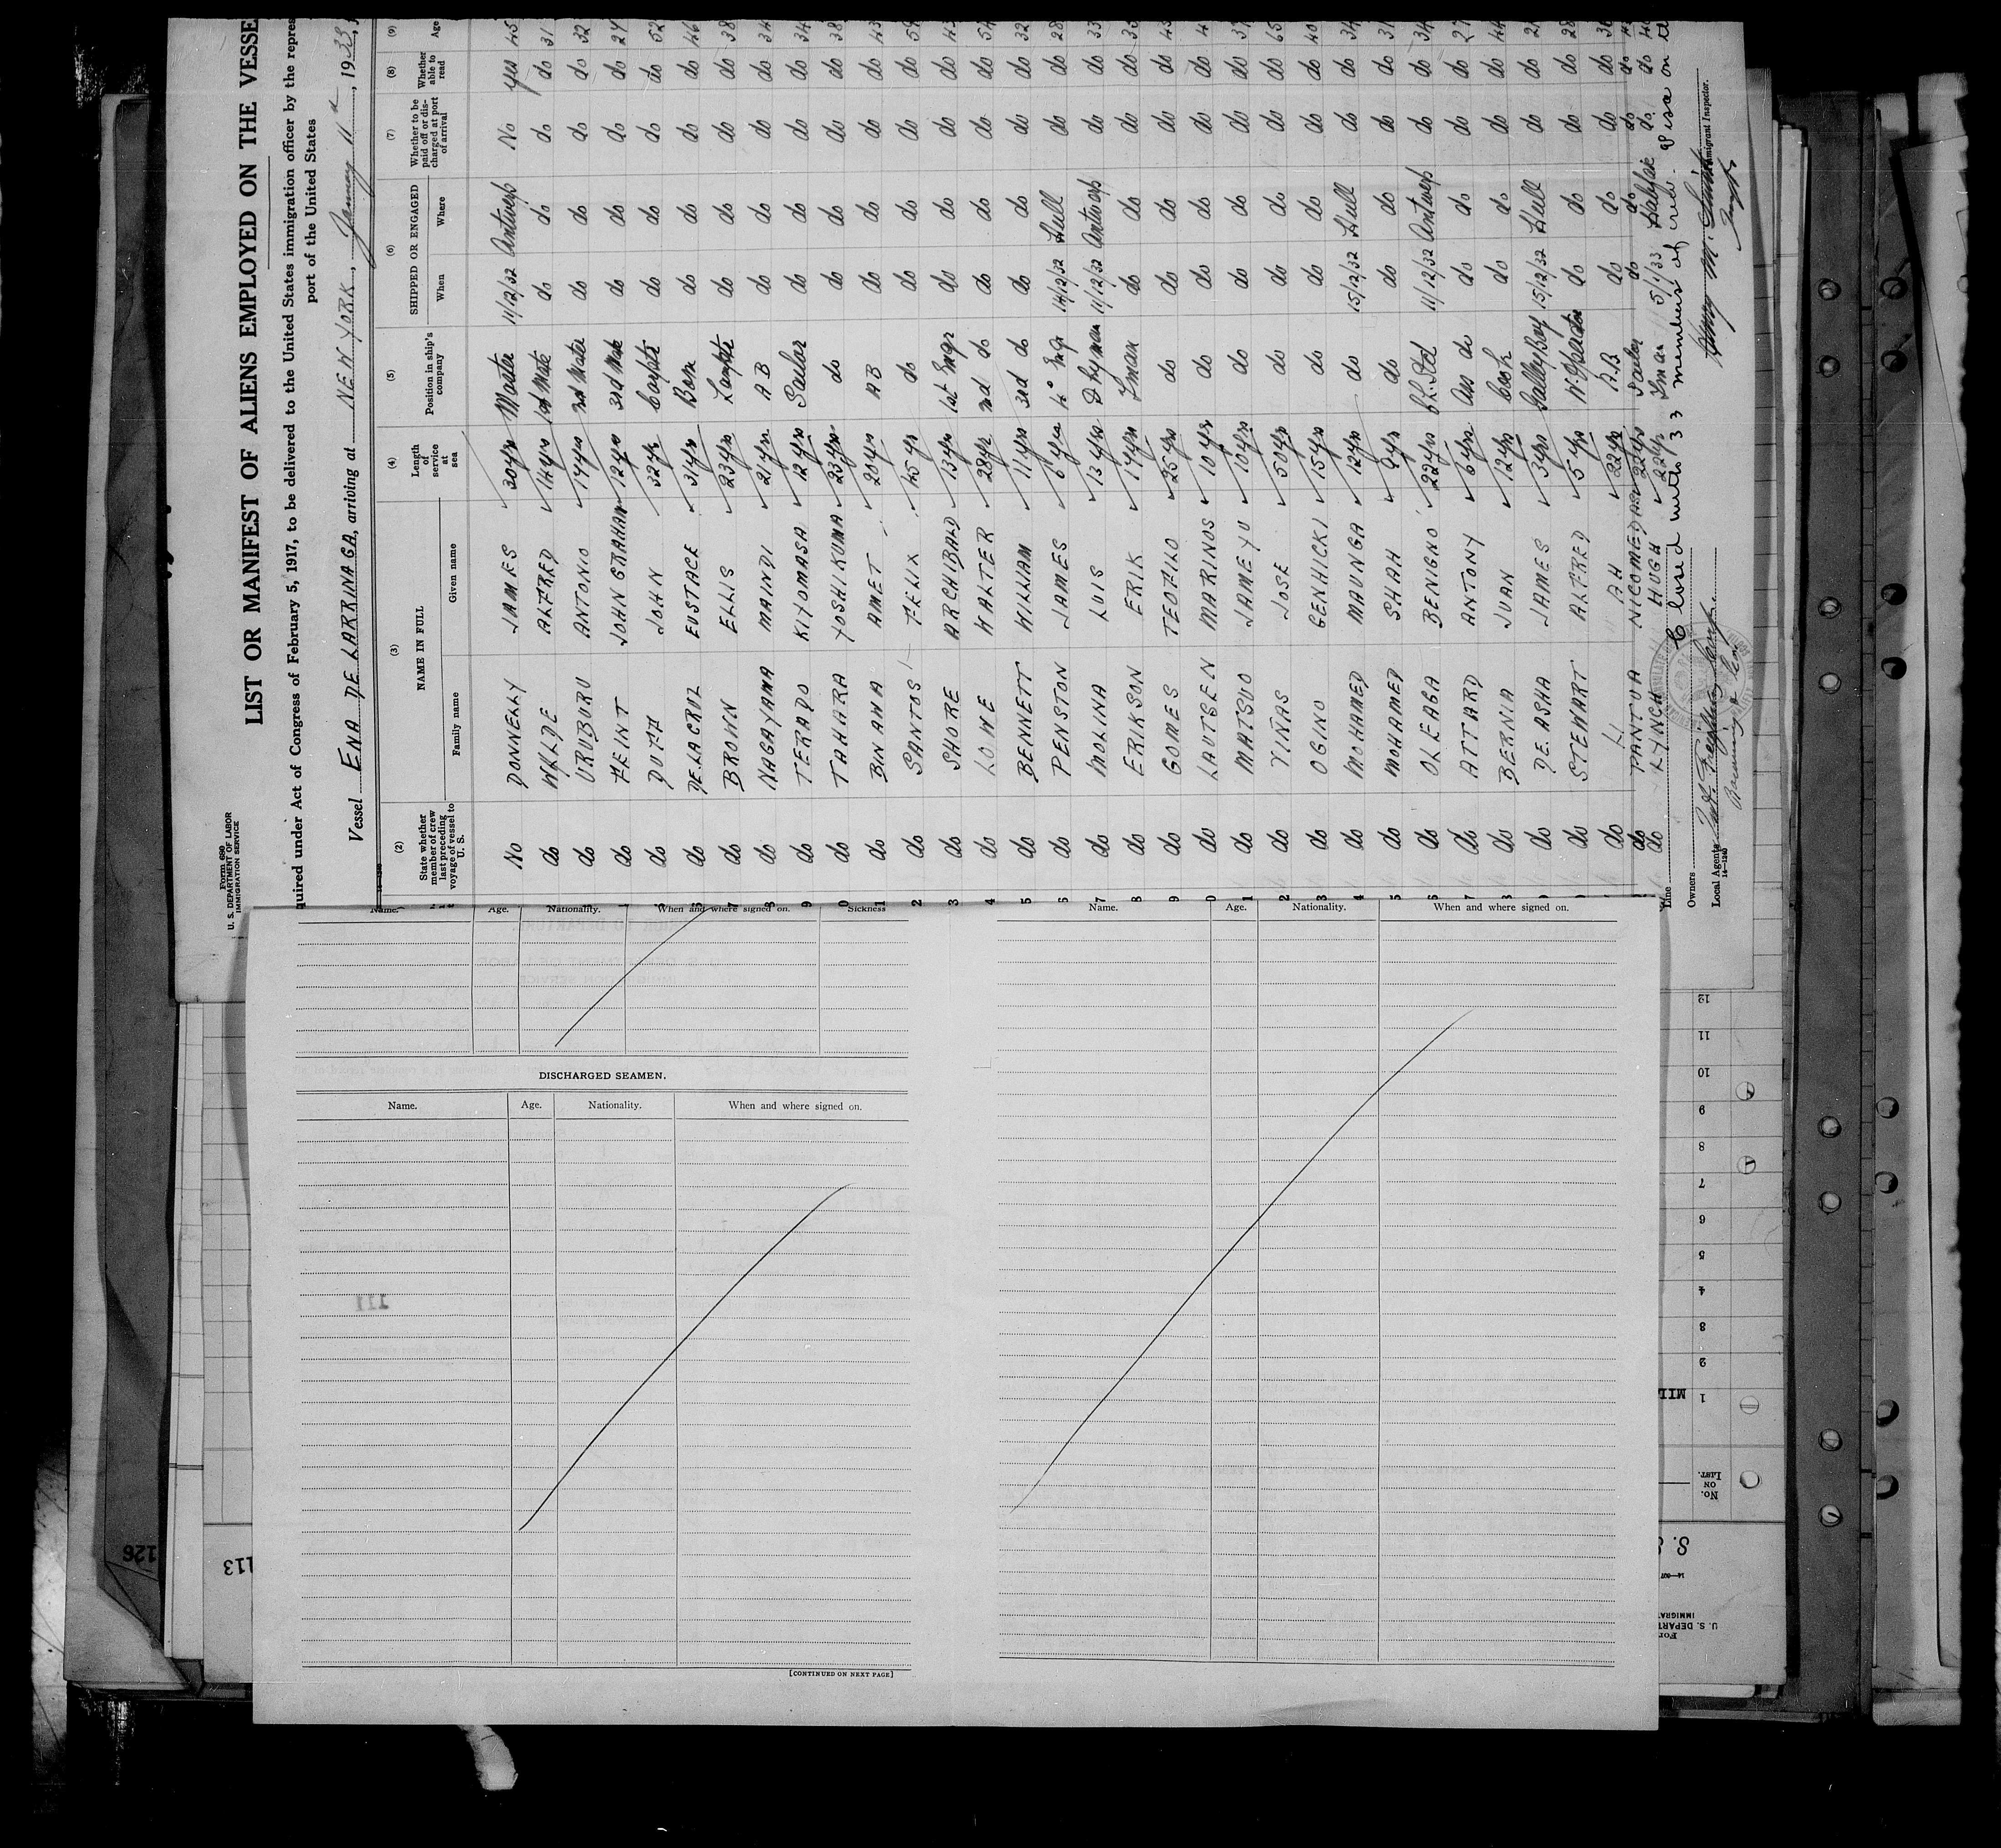 Form 680
U. S. DEPARTMENT OF LABOR
IMMIGRATION SERVICE
LIST OR MANIFEST OF ALIENS EMPLOYED ON THE VESSE
quired under Act of Congress of February 5, 1917, to be delivered to the United States immigration officer by the repres
port of the United States
Vessel ENA DE LARRINAGA, arriving at NEW YORK, January 11th, 1933,
(2) (3) (4) (5) (6) (7) (8) (9)
State whether member of crew last preceding voyage of vessel to U. S.
NAME IN FULL
Family name Given name
Length of service at sea
Position in ship's company
SHIPPED OR ENGAGED
When Where
Whether to be paid off or discharged at port of arrival
Whether able to read
Age
No DONNELLY JAMES 30yrs Master 11/12/32 Antwerp No yes 45
do WYLDE ALFRED 14yrs 1st Mate do do do do 31
do URUBURU ANTONIO 17yrs 2nd Mate do do do do 32
do FEINT JOHN GRAHAM 12yrs 3rd Mate do do do do 29
do DUFF JOHN 32yrs do do do do 52
do DE LACRUZ EUSTACE 31yrs Bosn do do do do 46
do BROWN ELLIS 23yrs do do do do 38
do NAGAYAMA MANDI 21yrs A B do do do do 34
do TERADO KIYOMASA 12yrs Sailor do do do do 34
do TAHARA YOSHIKUMA 23yrs do do do do do 38
do BIN AWA AMET 20yrs A B do do do do 43
do SANTOS FELIX 45yrs do do do do do 59
do SHORE ARCHIBALD 13yrs 1st Engr do do do do
do LOWE WALTER 28yrs 2nd do do do do do 54
do BENNETT WILLIAM 11yrs 3rd do do do do do 32
do PENSTON JAMES 6yrs 4th Engr 14/12/32 Hull do do 28
do MOLINA LUIS 13yrs Dkyman 11/12/32 Antwerp do do 33
do ERIKSON ERIK 17yrs Fman do do do do 35
do GOMES TEOFILO 25yrs do do do do do 45
do LAUTSEN MARINOS 10yrs do do do do do
do MATSUO JAMEYU 10yrs do do do do do 37
do VIÑAS JOSE 50yrs do do do do do 65
do OGINO GENHICKI 15yrs do do do do do 40
do MOHAMED MAUNGA 12yrs do 15/12/32 Hull do do 34
do MOHAMED SHAH 9yrs do do do do do 31
do OLEAGA BENIGNO 22yrs Ch. Std 11/12/32 Antwerp do do 34
do ATTARD ANTONY 6yrs Ass do do do do do 27
do BERNIA JUAN 12yrs Cook do do do do 44
do DE ASHA JAMES 3yrs Galley Boy 15/12/32 Hull do do 21
do STEWART ALFRED 5yrs do do do do 28
do LI AH 22yrs A.B do do do do
do PANTOJA NICOMEDAS 22yrs Sailor do do do do
do LYNCH HUGH 22yrs Fman 5/1/33 Halifax do do
Closed with 33 members of crew. Visa on
Line
Owners
Local Agents
14—1240
Immigrant Inspector.
Name. Age. Nationality. When and where signed on. Sickness
DISCHARGED SEAMEN.
Name. Age. Nationality. When and where signed on.
[CONTINUED ON NEXT PAGE]
Name. Age. Nationality. When and where signed on.
111
126
113
12
11
10
9
8
7
6
5
4
3
2
1
No. ON LIST.
U. S. DEPART
IMMIGRAT